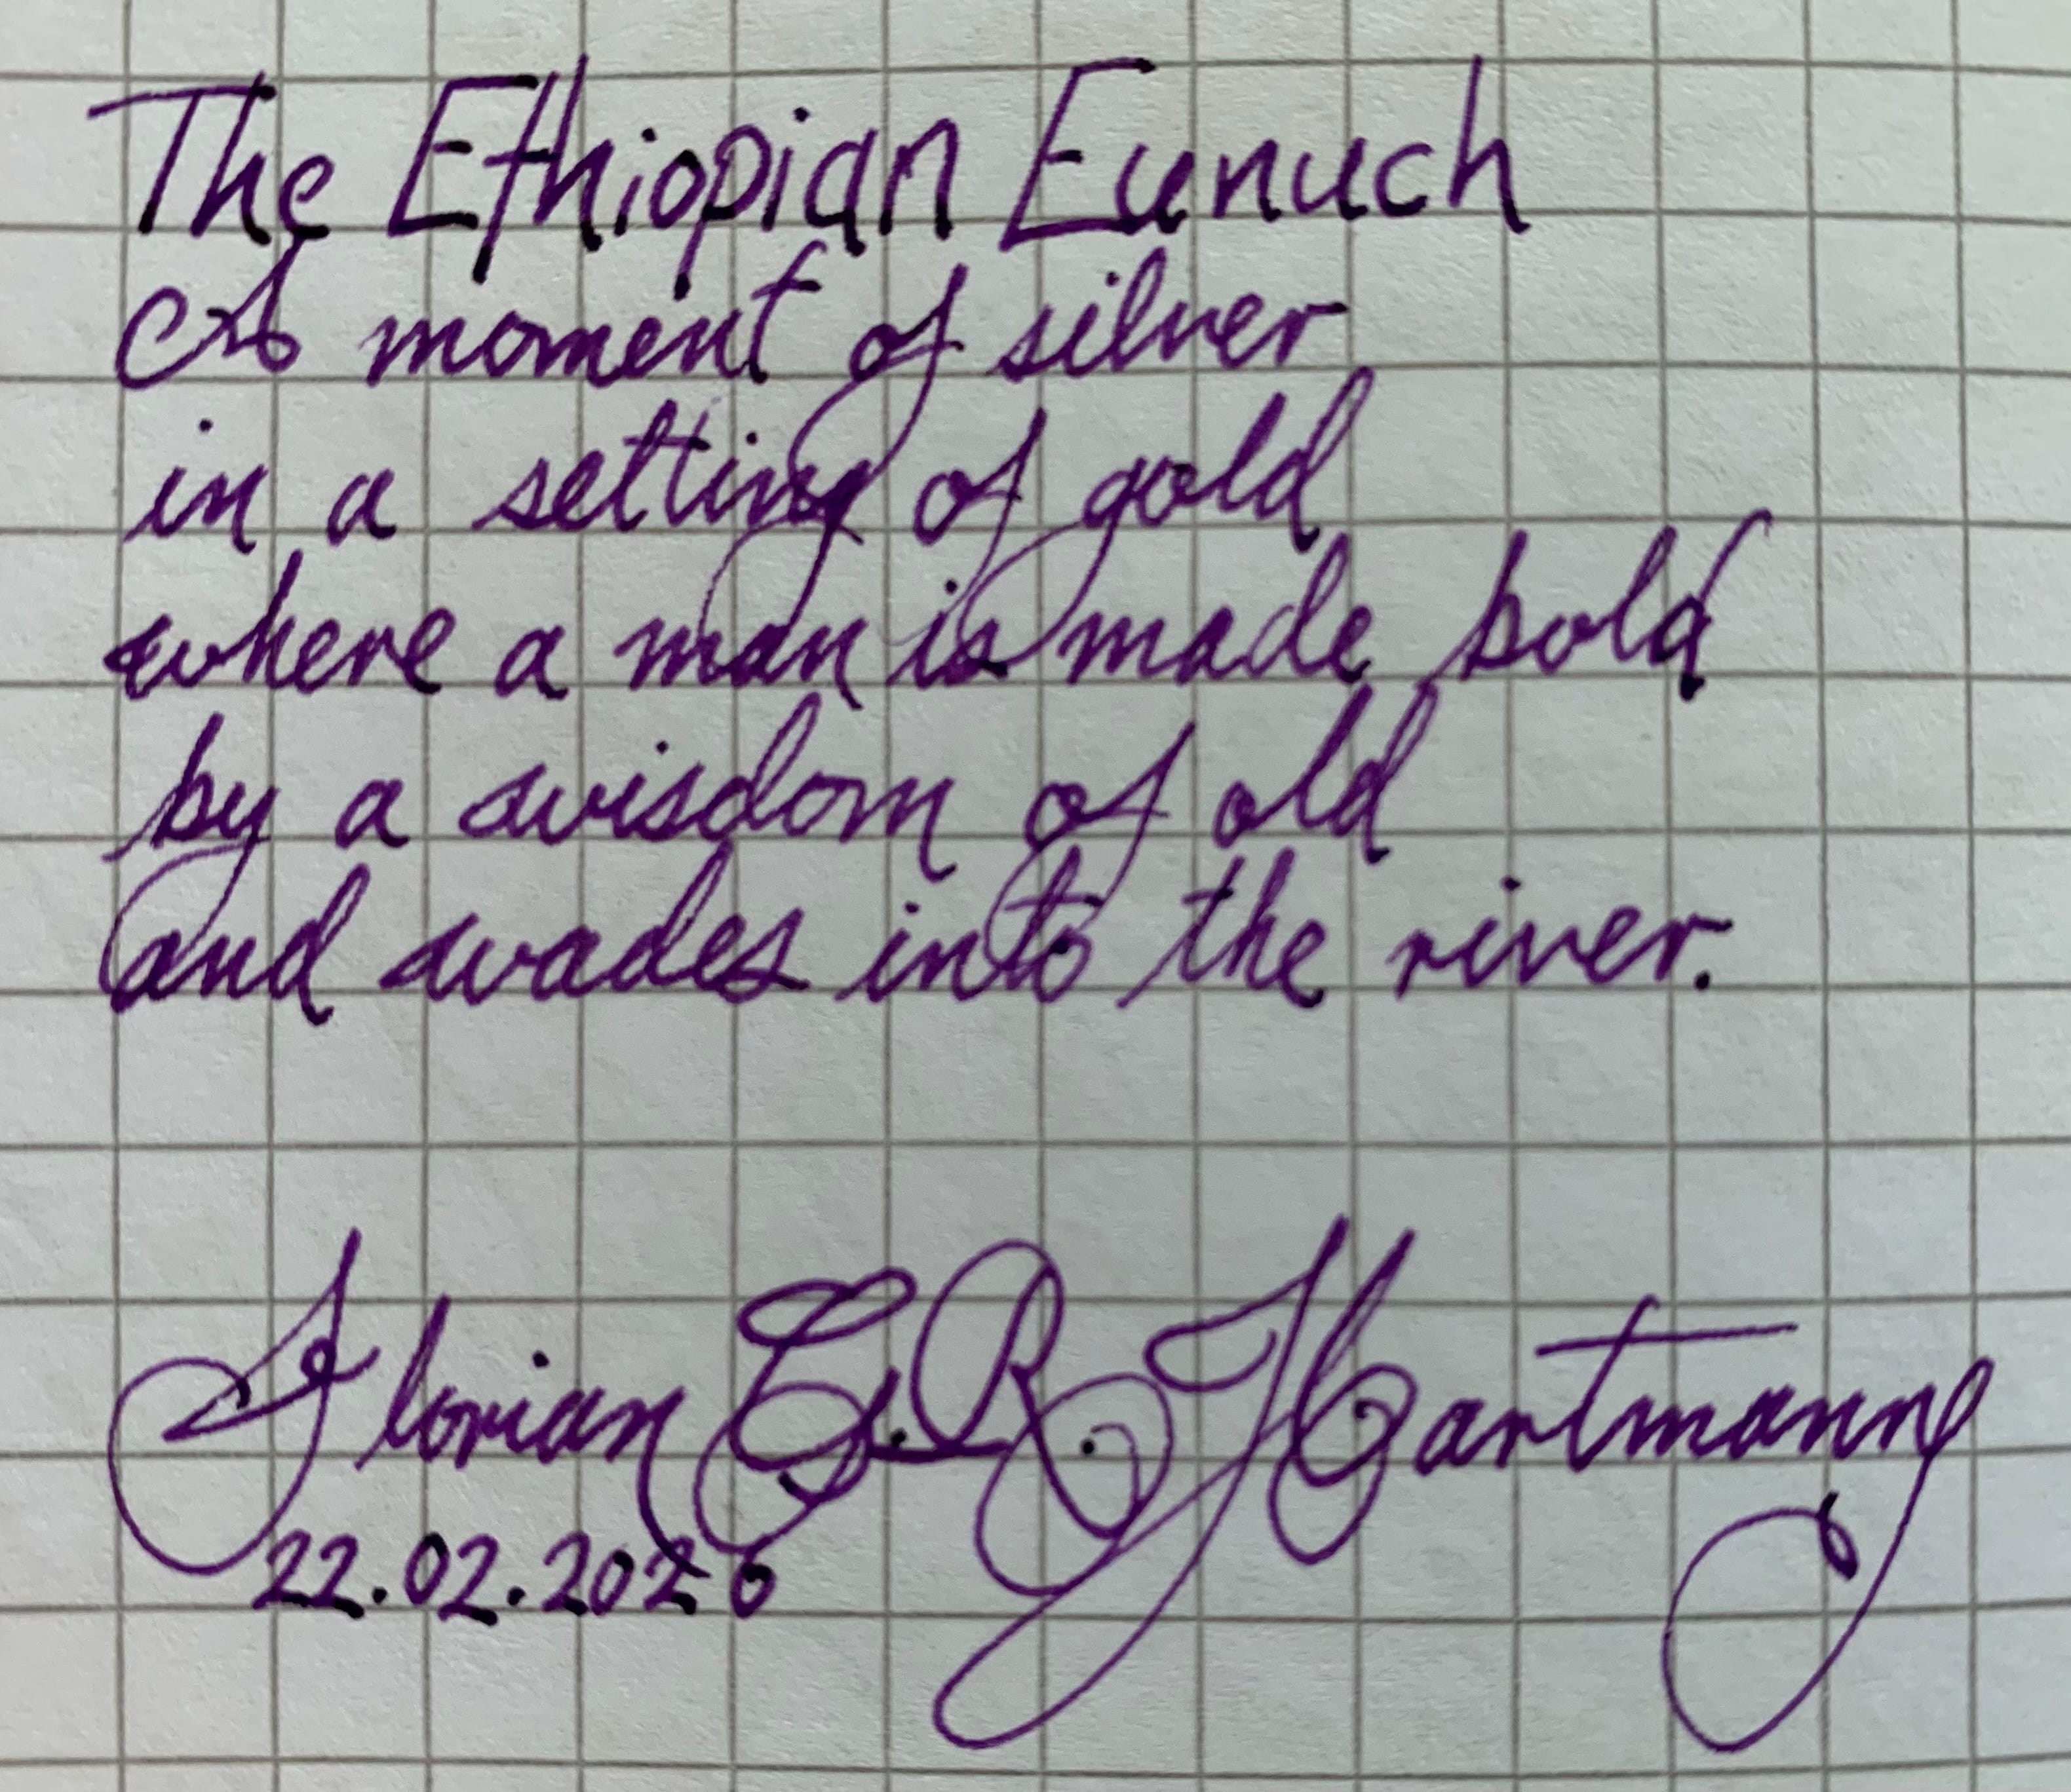 The Ethiopian Eunuch
A moment of silver
in a setting of gold
where a man is made bold
by a wisdom of old
and wades into the river.
Florian G. R. Hartmann
22.02.2026